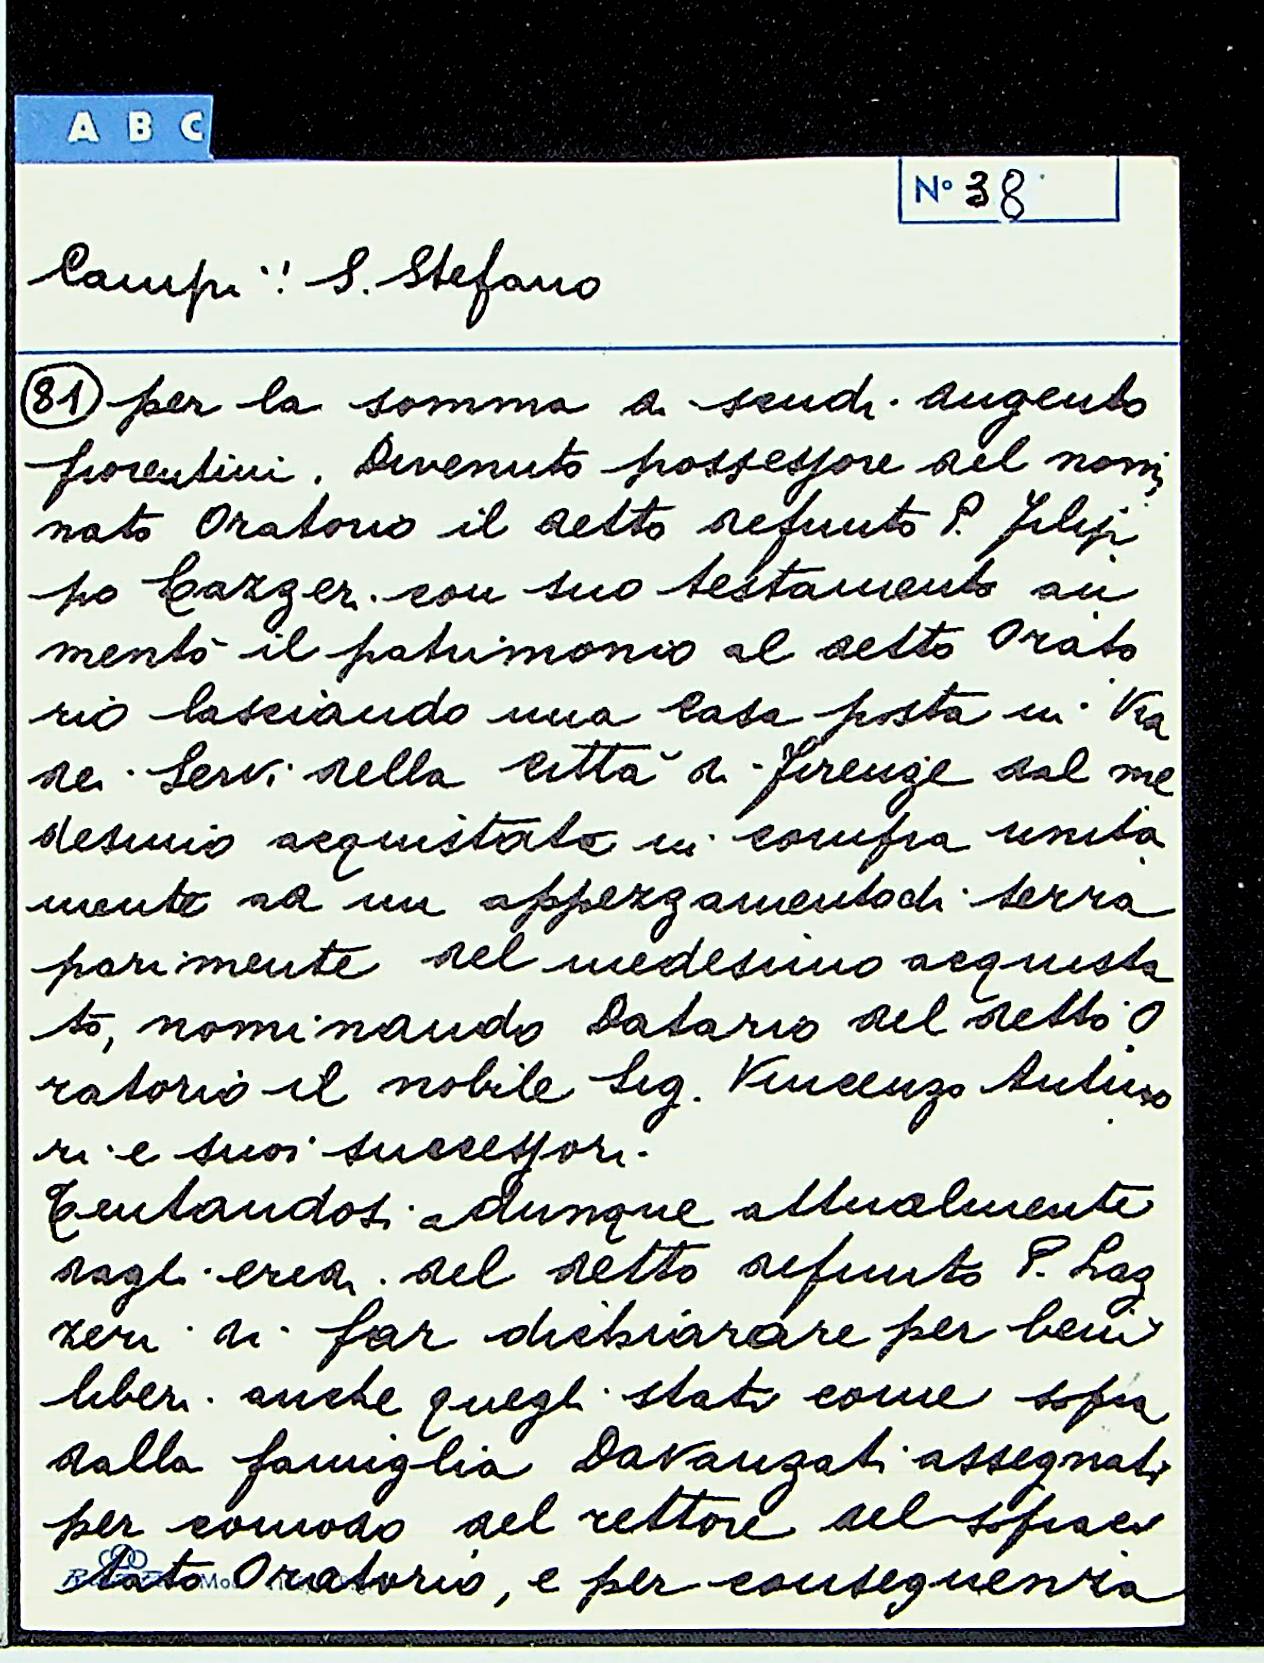 A B C
N° 38
Campi: S. Stefano
81 per la somma di scudi argento
fiorentini. Divenuto possessore del nomi
nato Oratorio il detto defunto P. Filip
po con suo testamento au
mentò il patrimonio al detto Orato
rio lasciando una Casa posta in Via
dei Servi della Città di Firenze dal me
desimo acquistata in compra unita
mente ad un appezzamento di terra
parimente del medesimo acquista
to, nominando Datario del detto O
ratorio il nobile Sig. Vincenzo Antino
ri e suoi successori.
Tentandosi adunque attualmente
dagli eredi del detto defunto P. Laz
zeri di far dichiarare per beni
liberi anche quegli stati come sopra
dalla famiglia Davanzati assegnati
per comodo del rettore del sopraci
tato Oratorio, e per conseguenza